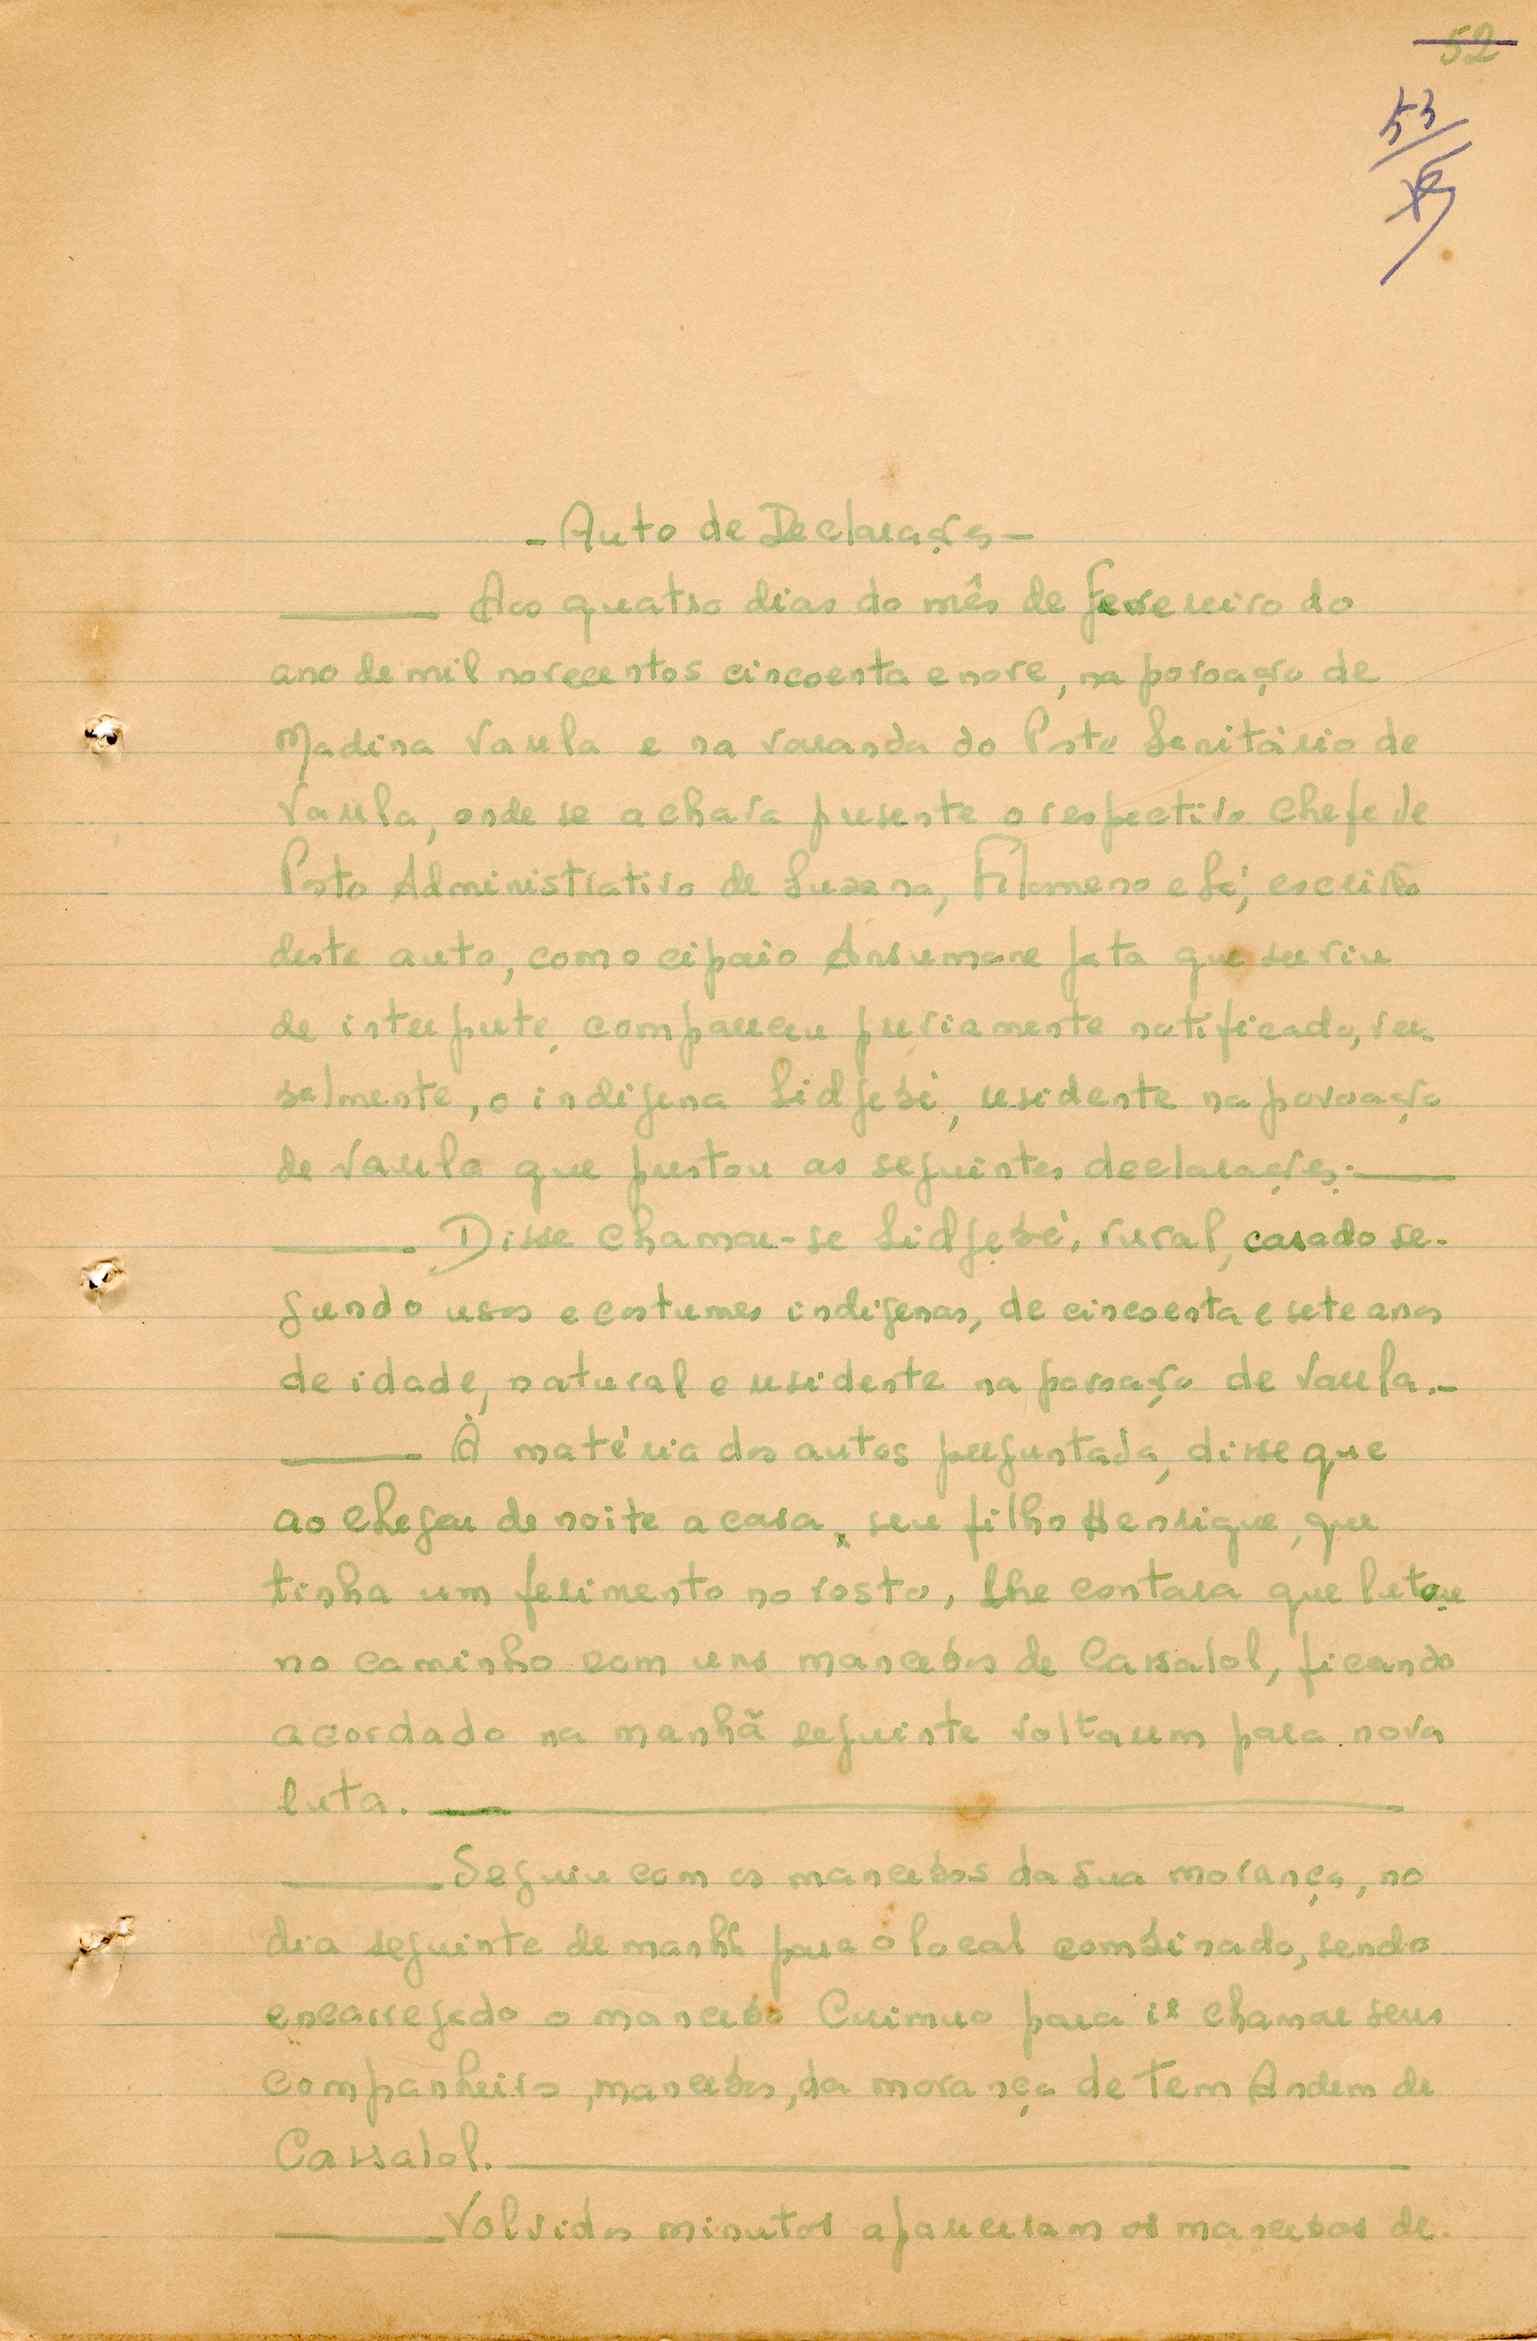 52
53
- Auto de Declarações -
Aos quatro dias do mês de fevereiro do
ano de mil novecentos cincoenta e nove, na povoação de
Madina Varela e na varanda do Posto Sanitário de
Varela, onde se achava presente o respectivo Chefe de
Posto Administrativo de Suzana, Filomeno e Sá, escrivão
deste auto, com o cipaio Ansumane Jata que serviu
de interprete, compareceu previamente notificado, ver-
balmente, o indigena Sidjebé, residente na povoação
de Varela que prestou as seguintes declarações:
Disse chamar-se Sidjebé, rural, casado se-
gundo usos e costumes indigenas, de cincoenta e sete anos
de idade, natural e residente na povoação de Varela.-
À matéria dos autos perguntada, disse que
ao chegar de noite a casa, seu filho Henrique, que
tinha um ferimento no rosto, lhe contara que lutou
no caminho com uns mancebos de Cassalol, ficando
acordado na manhã seguinte voltarem para nova
luta.
Seguiu com os mancebos da sua morança, no
dia seguinte de manhã para o local combinado, sendo
encarregado o mancebo para ir chamar seus
companheiros, mancebos, da morança de Tem Andem de
Cassalol.
Volvidos minutos apareceram os mancebos de